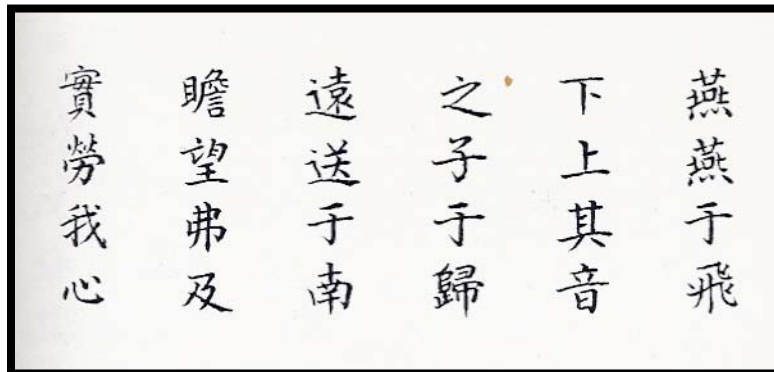 燕燕于飛
下上其音
之子于歸
遠送于南
瞻望弗及
實勞我心